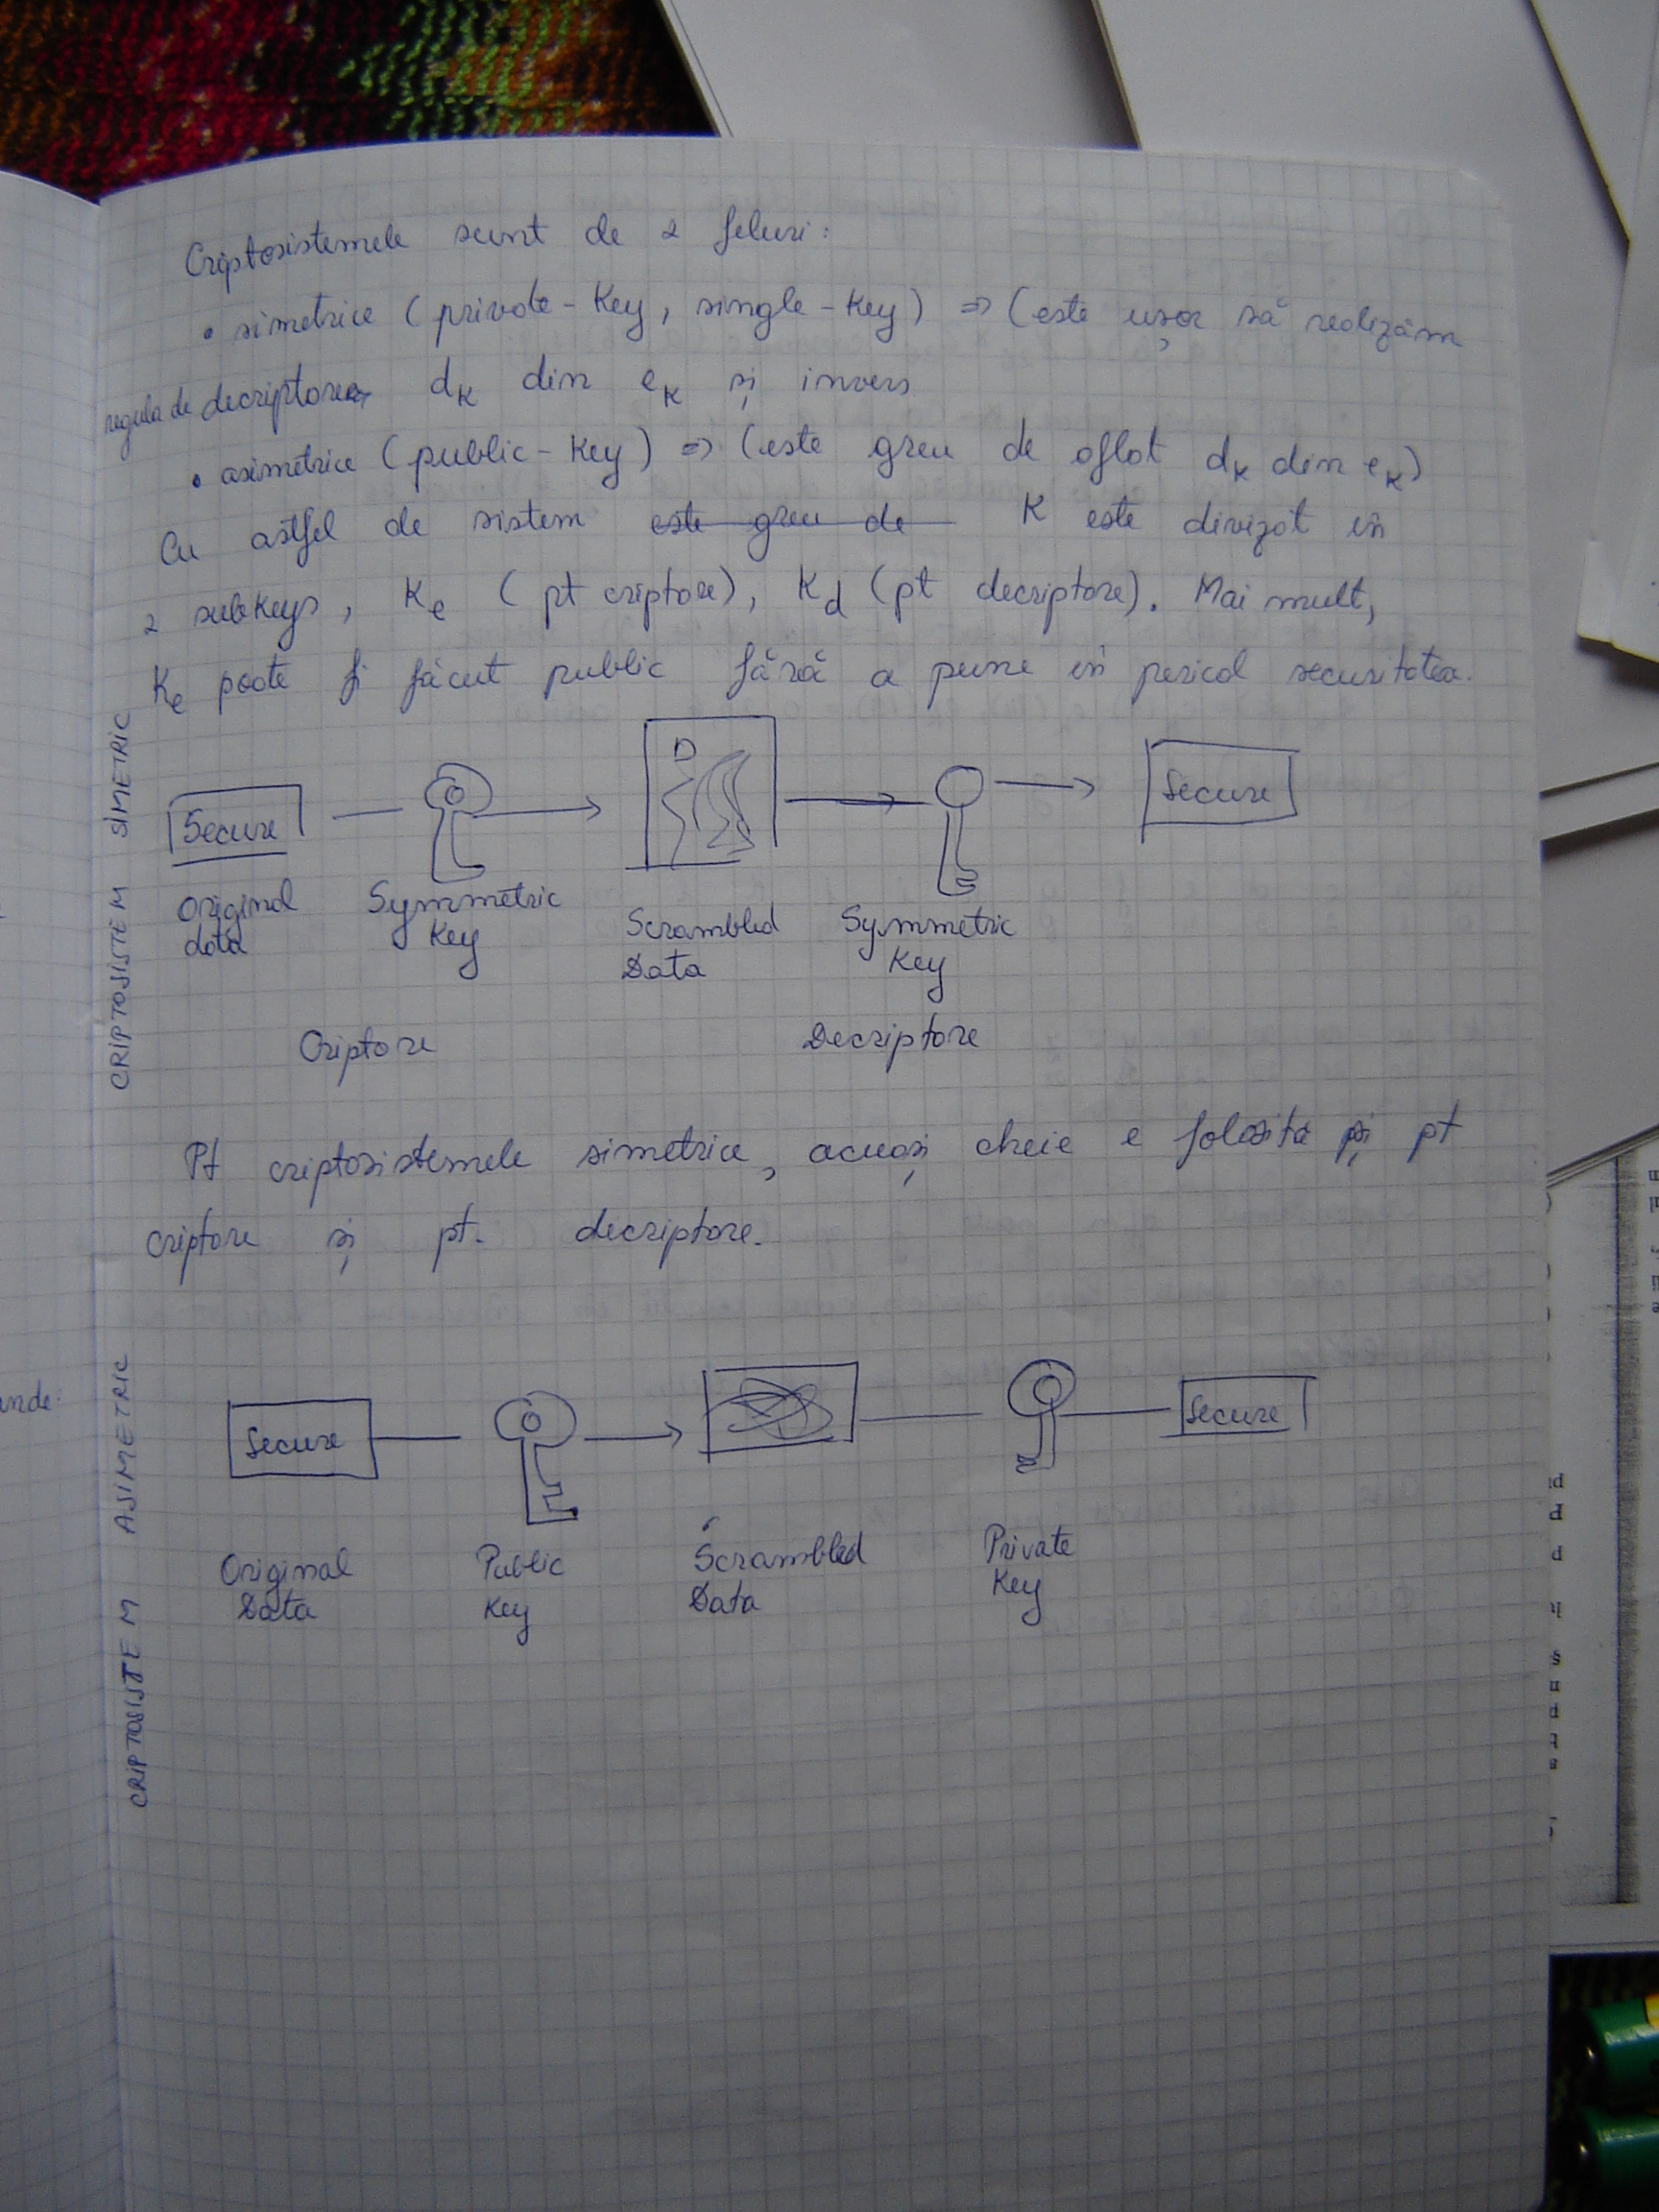 Criptosistemele sunt de 2 feluri:
• simetrice (private-Key, single-Key) => (este ușor să realizăm
regula de decriptare dK din eK și invers
• asimetrice (public-Key) => (este greu de aflat dK din eK)
Cu astfel de sistem este greu de K este divizat în
2 subkeys, Ke (pt criptare), Kd (pt decriptare). Mai mult,
Ke poate fi făcut public fără a pune în pericol securitatea.
CRIPTOSISTEM SIMETRIC
Secure
Secure
Original data
Symmetric Key
Scrambled Data
Symmetric Key
Criptare
Decriptare
Pt criptosistemele simetrice, aceași cheie e folosita și pt
criptare și pt. decriptare.
CRIPTOSISTEM ASIMETRIC
Secure
Secure
Original Data
Public Key
Scrambled Data
Private Key